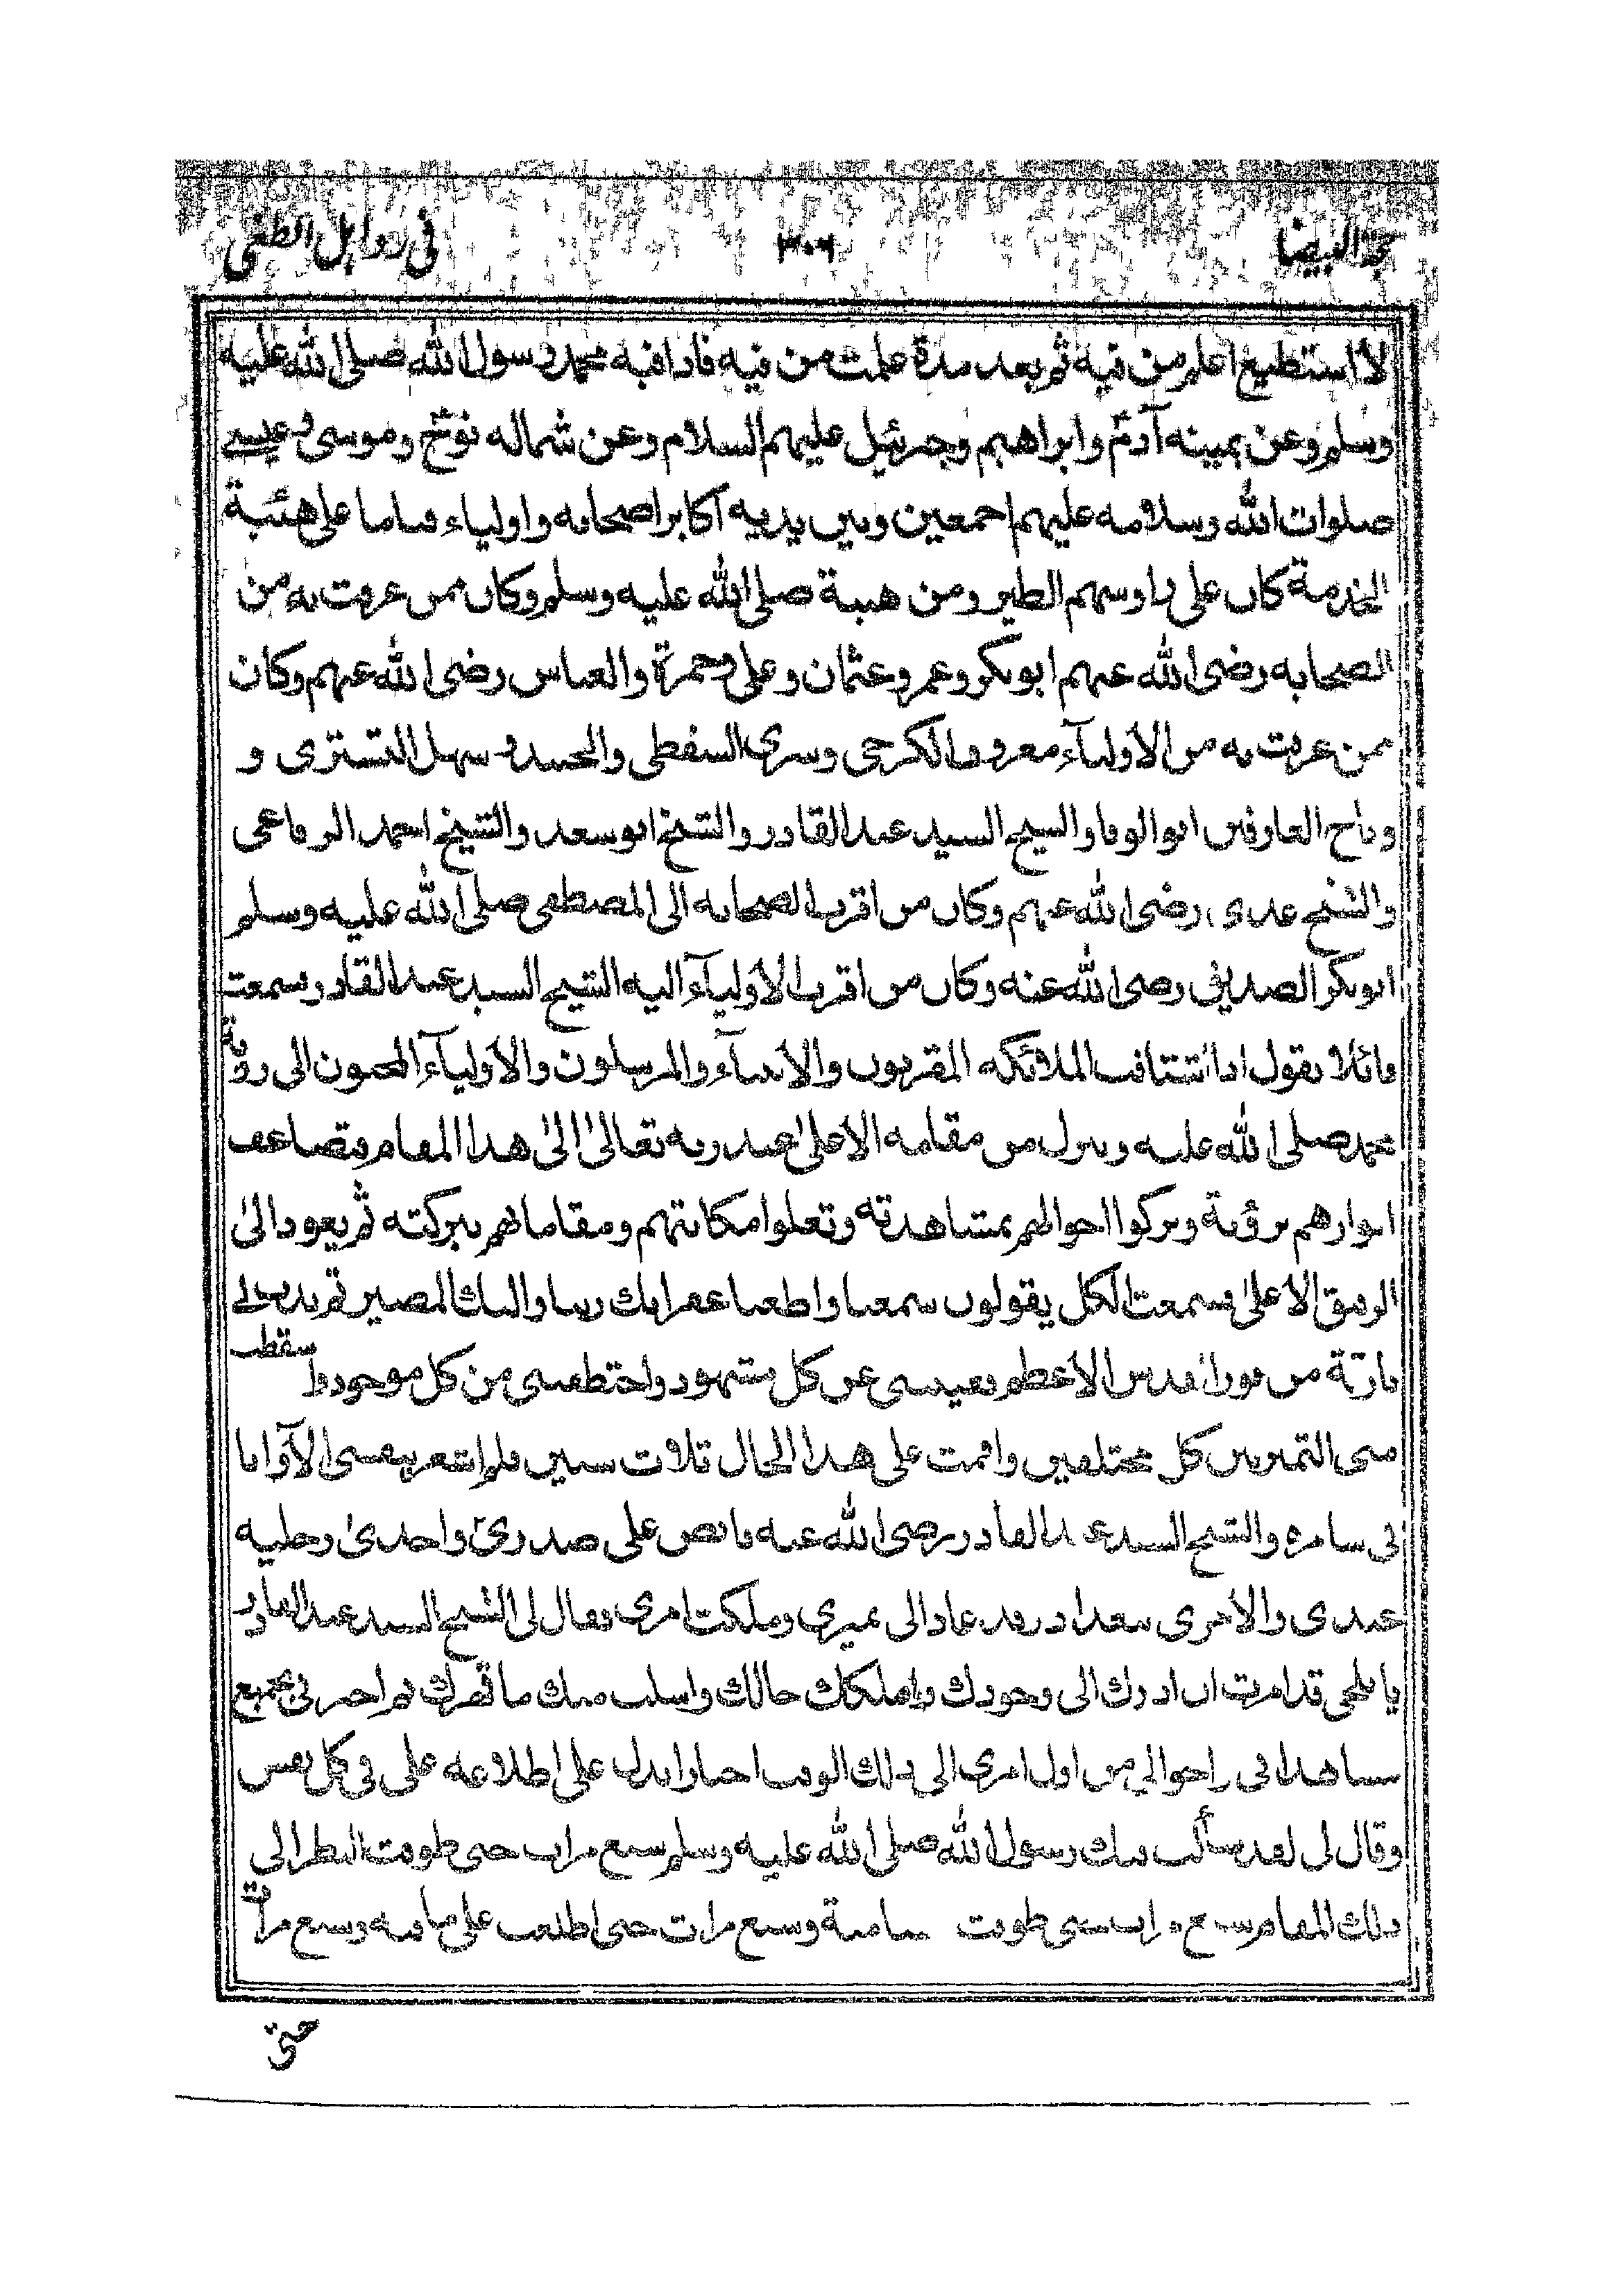 لا استطيع اعلم من فيه ثم بعد مدة علمت من فيه فاذا فيه محمد رسول الله صلى الله عليه
وسلم وعن يمينه آدم وابراهيم وجبرئيل عليهم السلام وعن شماله نوح وموسى وعيسى
صلوات الله وسلامه عليهم اجمعين وبين يديه اكابر اصحابه واولياء قياما على هيئة
الخدمة كان على رؤسهم الطير ومن هيبة صلى الله عليه وسلم وكان ممن عرفت به من
الصحابه رضى الله عنهم ابوبكر وعمر وعثمان وعلى وحمزة والعباس رضى الله عنهم وكان
ممن عرفت به من الاولياء معروف الكرخى وسرى السقطى والجنيد و سهل التسترى و
وتاج العارفين ابو الوفا والشيخ السيد عبد القادر والشيخ ابو سعد والشيخ احمد الرفاعى
والشيخ عدى رضى الله عنهم وكان من اقرب الصحابه الى المصطفى صلى الله عليه وسلم
ابوبكر الصديق رضى الله عنه وكان من اقرب الاولياء اليه الشيخ السيد عبد القادر وسمعت
قائلا يقول اذا اشتاقت الملائكه المقربون والانبياء والمرسلون والاولياء المحبون الى رؤية
محمد صلى الله عليه وسلم ينزل من مقامه الاعلى عند ربه تعالى الى هذا المقام فتضاعف
انوارهم برؤية وتزكوا احوالهم بمشاهدته وتعلوا مكانتهم ومقاماتهم ببركته ثم يعود الى
الرفيق الاعلى وسمعت الكل يقولون سمعنا واطعنا غفرانك ربنا واليك المصير ثم بدت لى
بارقة من نور القدس الاعظم فغيبنى عن كل مشهود واختطفنى من كل موجود واسقطت
منى التميز بين كل مختلفين واقمت على هذا الحال ثلاث سنين فلم اشعر بنفسى الا وانا
فى سامره والشيخ السيد عبد القادر رضى الله عنه قابض على صدرى واحدى رجليه
عندى والاخرى ببغداد وقد عاد الى تميزى وملكت امرى فقال لى الشيخ السيد عبد القادر
يا بلخى قد امرت ان اردك الى وجودك واملكك حالك واسلب منك ما قهرك ثم اخبرنى بجميع
مشاهداتى واحوالى من اول امرى الى ذلك الوقت اخبارا يدل على اطلاعه على فى كل نفس
وقال لى لقد سألت فيك رسول الله صلى الله عليه وسلم سبع مرات حتى طوقت النظر الى
ذلك المقام وسبع مرات حتى طوقت مناسة وسبع مرات حتى اطلعت على ما فيه وسبع مرات
حتى